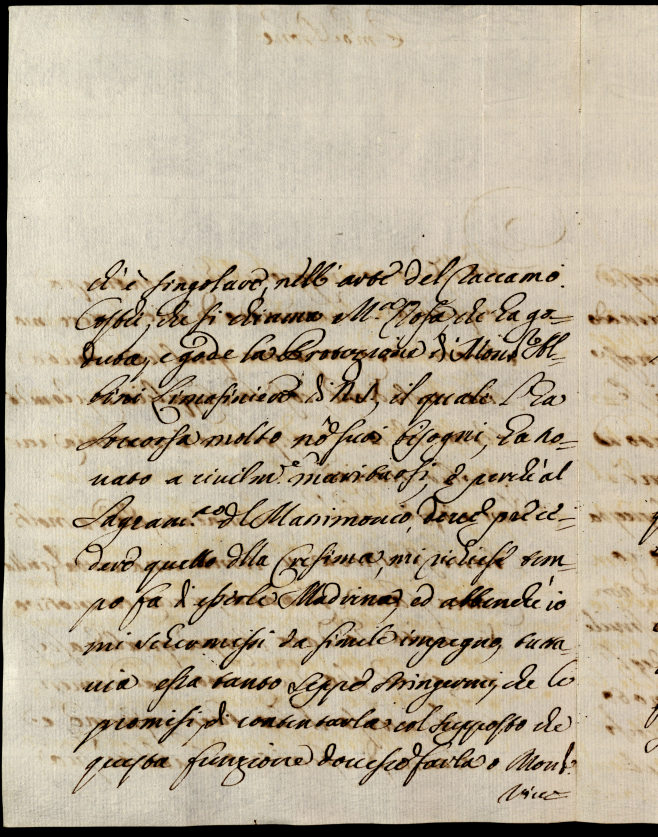 ch'è singolare, nell'arte del Raccamo.
Costei, che si chiama M.ª Rosa, che ha go-
duta, e gode la Protezione di Mons.re Al-
bini Limosiniere di N. S., il quale l'ha
soccorsa molto ne' suoi bisogni, ha tro-
vato a civilm.te maritarsi, e perchè al
Sagram.to del Matrimonio deve prece-
dere quello della Cresima, mi richiese tem-
po fa di esserle Madrina, ed abbenchè io
mi schermissi da simile impegno, tutta-
via essa tanto seppe stringermi, che le
promisi di contentarla col supposto che
questa funzione dovesse farla o Mons.r
Vice-